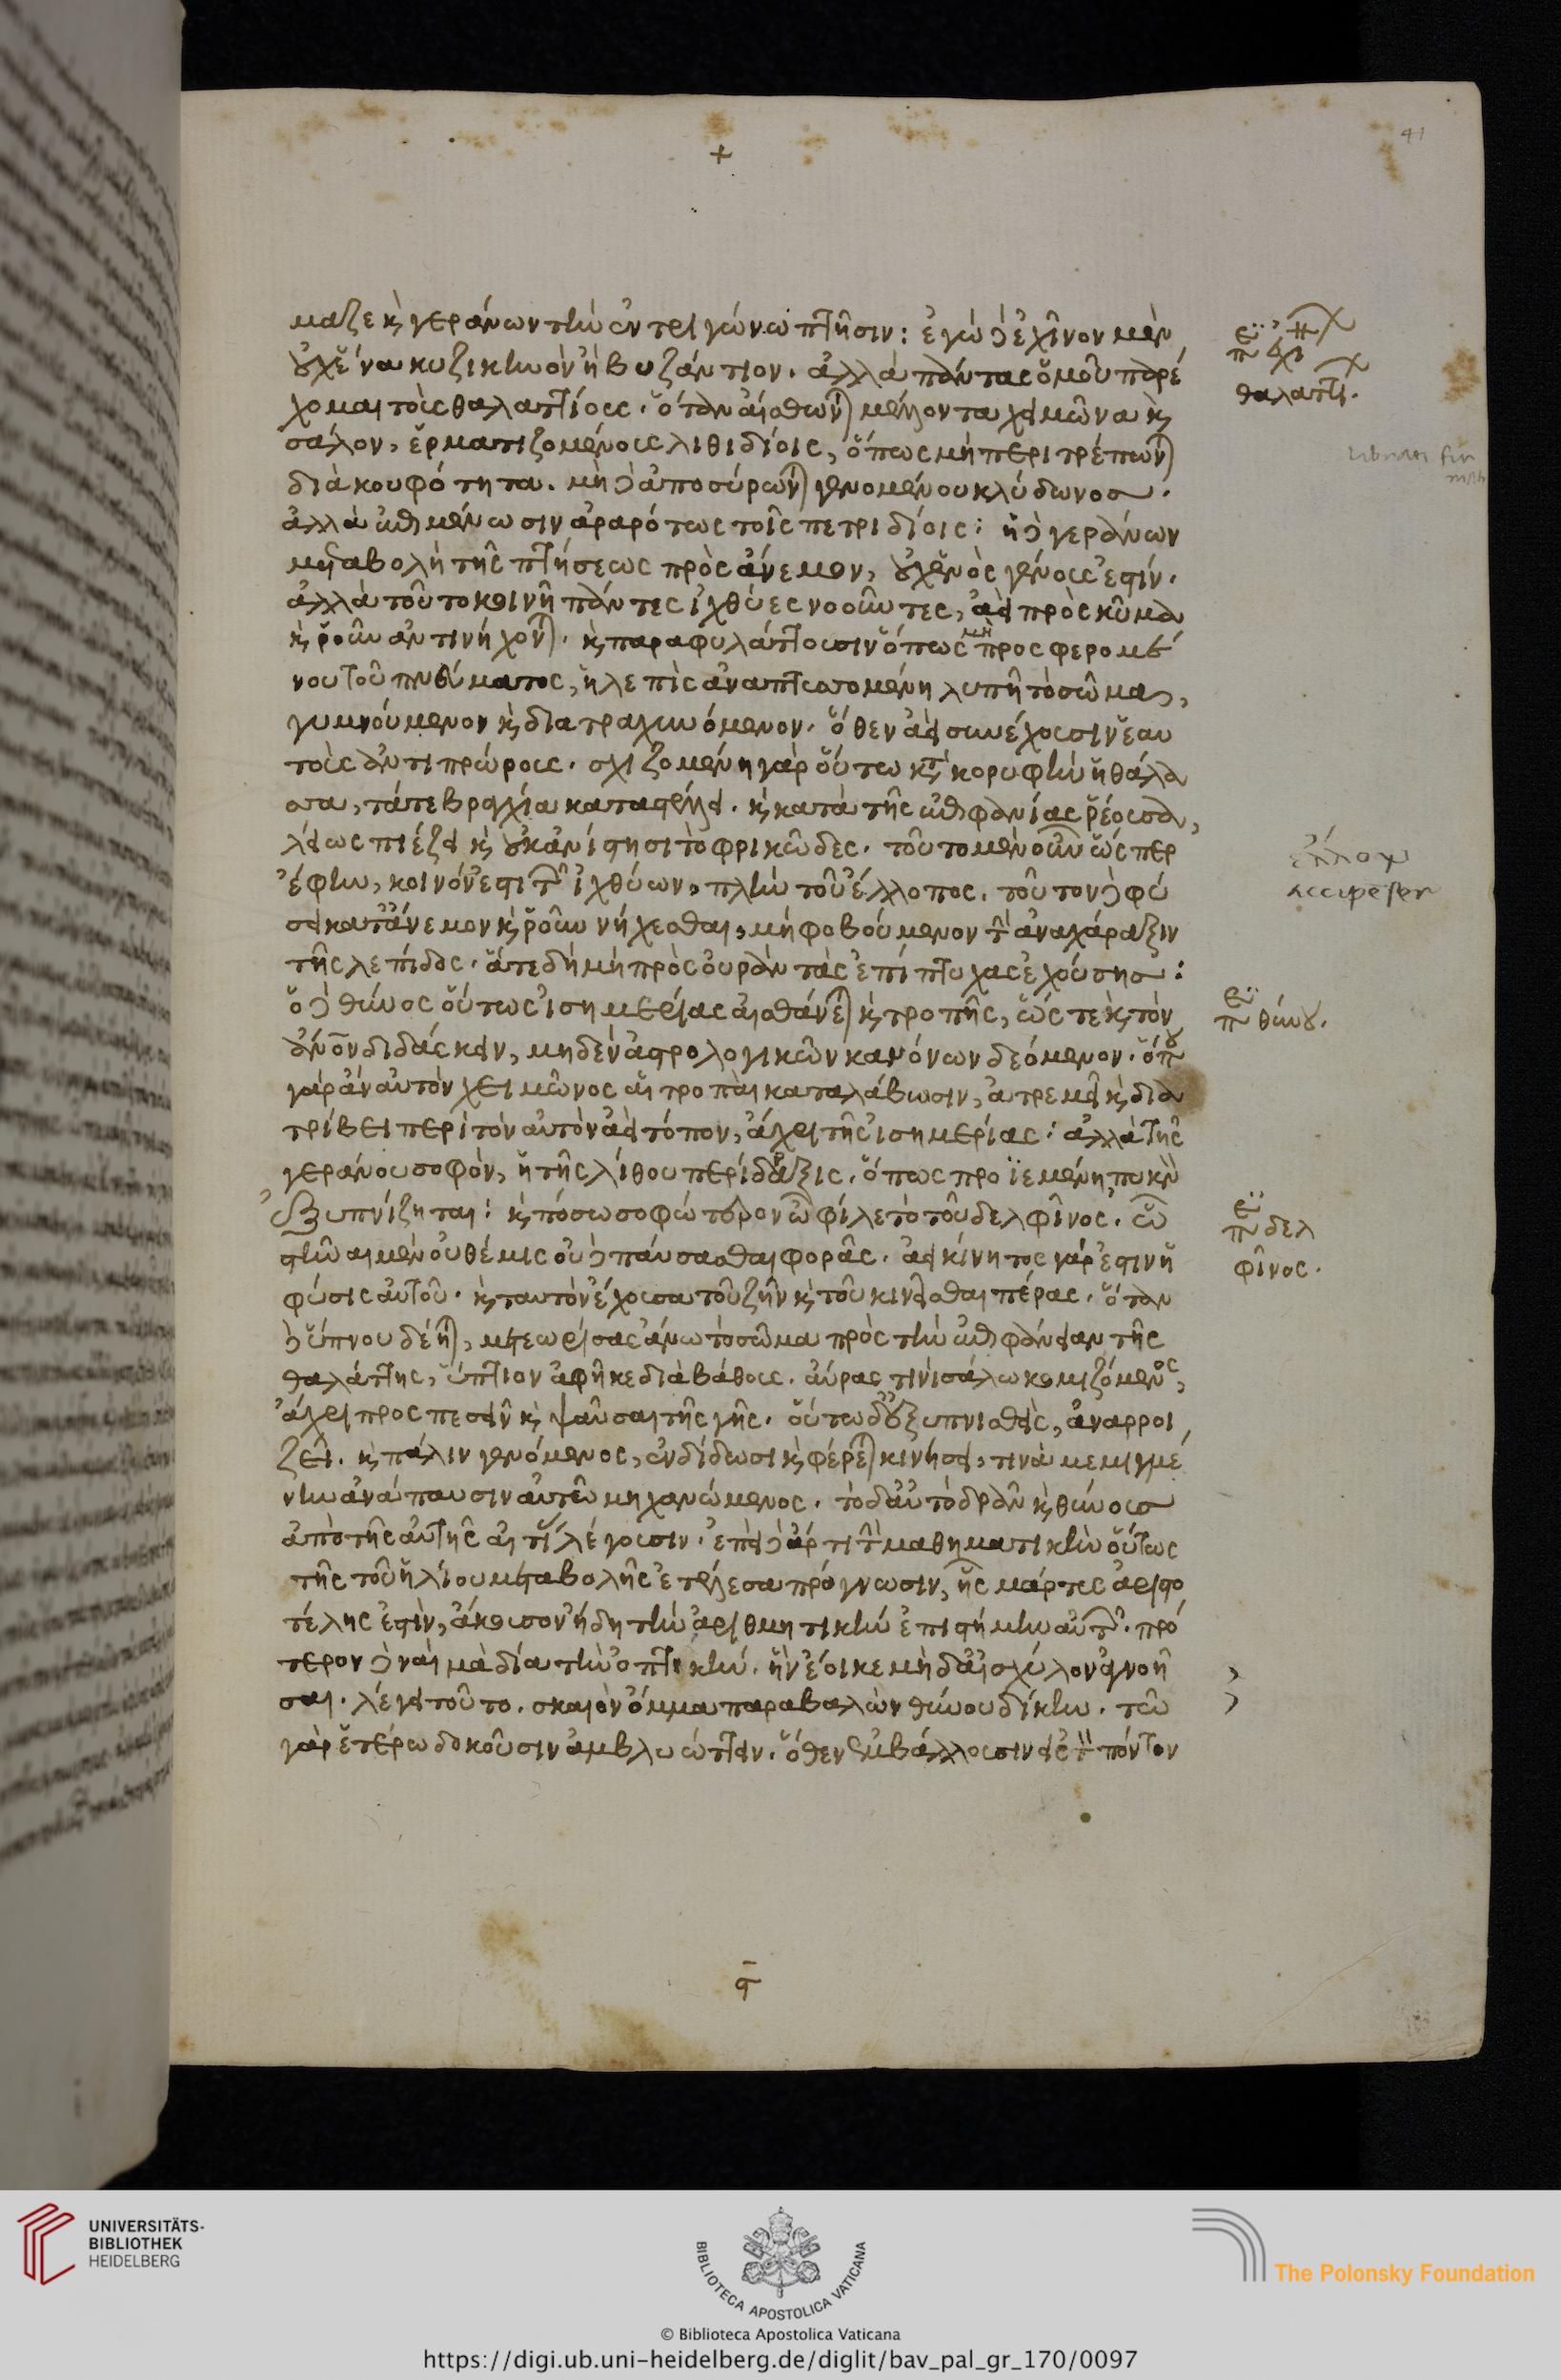 +
41
μαζε κ̀ γεράνων τὴν ἐν τριγώνω πτῆσιν: ἐγὼ δὲ ἐχῖνον μὲν
οὐχ ἕνα κυζικηνὸν ἢ βυζάντιον. ἀλλὰ πάντας ὁμοῦ παρέ
χομαι τοὺς θαλαττίους. ὅταν αἴσθωνται μέλλοντα χειμῶνα κ̀
σάλον, ἑρματιζομένους λιθιδίοις, ὅπως μὴ περιτρέπωνται
διὰ κουφότητα. μὴ δὲ ἀποσύρωνται γενομένου κλύδωνος.
ἀλλὰ ἐπιμένωσιν ἀραρότως τοῖς πετριδίοις: ἡ δὲ γεράνων
μεταβολὴ τῆς πτήσεως πρὸς ἄνεμον, οὐχ ἑνὸς γένους ἐστίν.
ἀλλὰ τοῦτο κοινῆ πάντες ἰχθύες νοοῦντες, ἀεὶ πρὸς κῦμα
κ̀ ῥοῦν ἀντινήχονται. κ̀ παραφυλάττουσιν ὅπως μὴ προσφερομέ
νου τοῦ πνεύματος, ἡ λεπὶς ἀναπτυσσομένη λυπῆ τὸ σῶμα,
γυμνούμενον κ̀ διατραχυνόμενον. ὅθεν ἀεὶ συνέχουσιν ἑαυ
τοὺς ἀντιπρώρους. σχιζομένη γὰρ οὕτω κατὰ κορυφὴν ἡ θάλα
σσα, τά τε βραχία καταστέλλει. κ̀ κατὰ τῆς ἐπιφανίας ῥέουσα,
λείως πιέζει κ̀ οὐκ ἀνίστησι τὸ φρικῶδες. τοῦτο μὲν οὖν ὥσπερ
ἔφην, κοινόν ἐστι τῶν ἰχθύων, πλὴν τοῦ ἔλλοπος. τοῦτον δὲ φύ
σει κατ' ἄνεμον κ̀ ῥοῦν νήχεσθαι, μὴ φοβούμενον τὴν ἀναχάραξιν
τῆς λεπίδος. ἅτε δὴ μὴ πρὸς οὐρὰν τὰς ἐπίπτυχας ἐχούσης:
ὁ δὲ θύνος οὕτως ἰσημερίας αἰσθάνεται κ̀ τροπῆς, ὥς τε κ̀ τὸν
ἄνον διδάσκειν, μηδὲν ἀστρολογικῶν κανόνων δεόμενον. ὅπου
γὰρ ἂν αὐτὸν χειμῶνος αἱ τροπαὶ καταλάβωσιν, ἀτρεμεῖ κ̀ δια
τρίβει περὶ τὸν αὐτὸν ἀεὶ τόπον, ἄχρι τῆς ἰσημερίας: ἀλλὰ τῆς
γεράνου σοφὸν, ἡ τῆς λίθου περίδραξις. ὅπως προϊεμένη, πυκν
ἐξυπνίζηται: κ̀ πόσω σοφώτερον ὦ φίλε τὸ τοῦ δελφῖνος. ὧ
στῆναι μὲν οὐ θέμις οὐδὲ παύσασθαι φορᾶς. ἀεικίνητος γάρ ἐστιν ἡ
φύσις αὐτοῦ. κ̀ ταυτὸν ἔχουσα τοῦ ζῆν κ̀ τοῦ κινεῖσθαι πέρας. ὅταν
δὲ ὕπνου δέηται, μετεωρίσας ἄνω τὸ σῶμα πρὸς τὴν ἐπιφάνειαν τῆς
θαλάττης, ὕπτιον ἀφῆκε διὰ βάθους. αὔρας τινὶ σάλω κομιζόμενος,
ἄχρι προσπεσεῖν κ̀ ψαῦσαι τῆς γῆς. οὕτω δ' ἐξυπνισθεὶς, ἀναρροι
ζεῖ. κ̀ πάλιν γενόμενος, ἐνδίδωσι κ̀ φέρεται κινήσει, τινὰ μεμιγμέ
νην ἀνάπαυσιν αὐτῶ μηχανώμενος. τὸ δ' αὐτὸ δρᾶν κ̀ θύνους
ἀπὸ τῆς αὐτῆς αἰτίας λέγουσιν. ἐπεὶ δὲ ἄρτι τὴν μαθηματικὴν οὕτως
τῆς τοῦ ἡλίου μεταβολῆς ἐτέλεσα πρόγνωσιν, ἧς μάρτυς ἀριστο
τέλης ἐστὶν, ἄκουσον ἤδη τὴν ἀριθμητικὴν ἐπιστήμην αὐτῶν. πρό
τερον δὲ ναὶ μὰ δία τὴν ὀπτικὴν. ἣν ἔοικε μὴ δ' αἰσχύλον ἀγνοῆ
σαι. λέγει τοῦτο. σκαιὸν ὄμμα παραβαλὼν θύνου δίκην. τῶ
γὰρ ἑτέρω δοκοῦσιν ἀμβλυώττειν. ὅθεν ἐμβάλλουσιν εἰς τὸν πόντον
θαλαττι.
ἔλλοψ
accipeser
περὶ θύνου.
περὶ δελ
φῖνος.
UNIVERSITÄTS-
BIBLIOTHEK
HEIDELBERG
BIBLIOTECA APOSTOLICA VATICANA
The Polonsky Foundation
© Biblioteca Apostolica Vaticana
https://digi.ub.uni-heidelberg.de/diglit/bav_pal_gr_170/0097